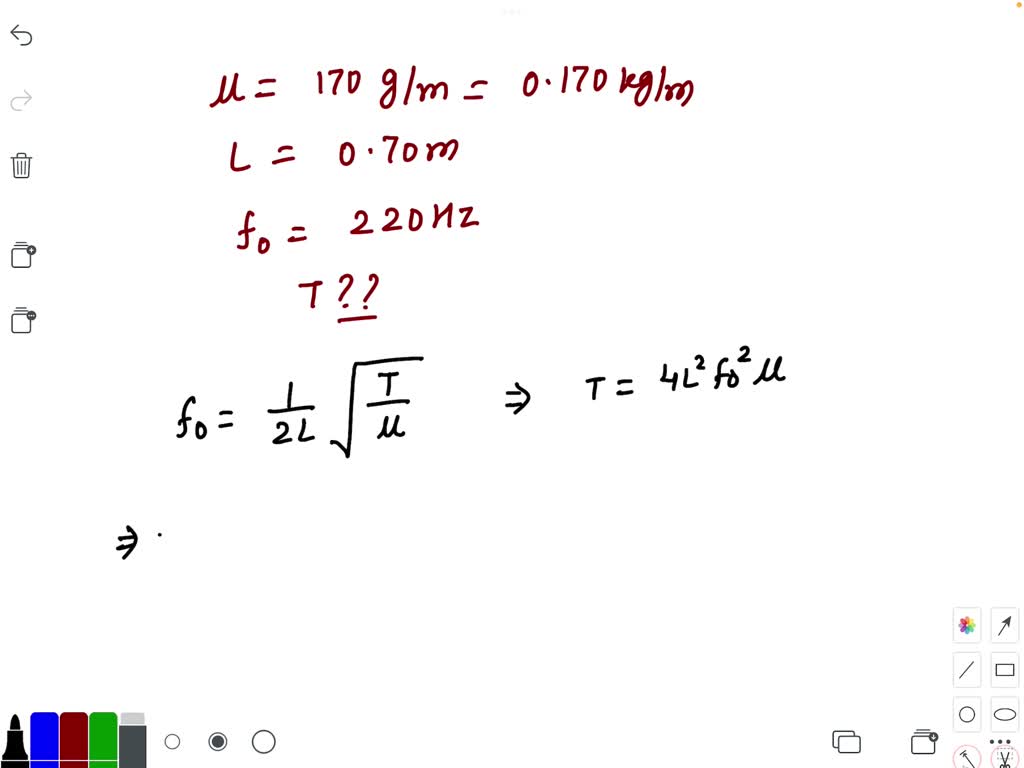 μ = 170 g/m = 0.170 kg/m
L = 0.70m
f₀ = 220Hz
T ??
f₀ = 1/2L √(T/μ) ⇒ T = 4L² f₀² μ
⇒ .